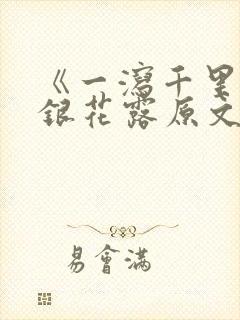 《一瀉千里
銀花露原文
易會滿